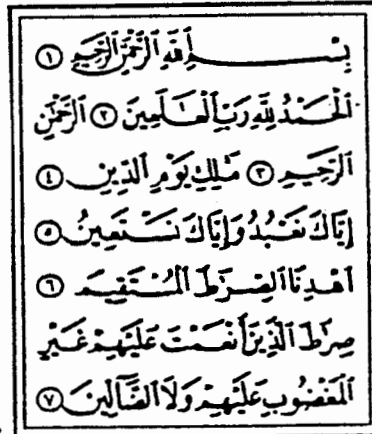 بِسْمِ اللَّهِ الرَّحْمَٰنِ الرَّحِيمِ ١
الْحَمْدُ لِلَّهِ رَبِّ الْعَالَمِينَ ٢ الرَّحْمَٰنِ
الرَّحِيمِ ٣ مَٰلِكِ يَوْمِ الدِّينِ ٤
إِيَّاكَ نَعْبُدُ وَإِيَّاكَ نَسْتَعِينُ ٥
اهْدِنَا الصِّرَٰطَ الْمُسْتَقِيمَ ٦
صِرَٰطَ الَّذِينَ أَنْعَمْتَ عَلَيْهِمْ غَيْرِ
الْمَغْضُوبِ عَلَيْهِمْ وَلَا الضَّآلِّينَ ٧